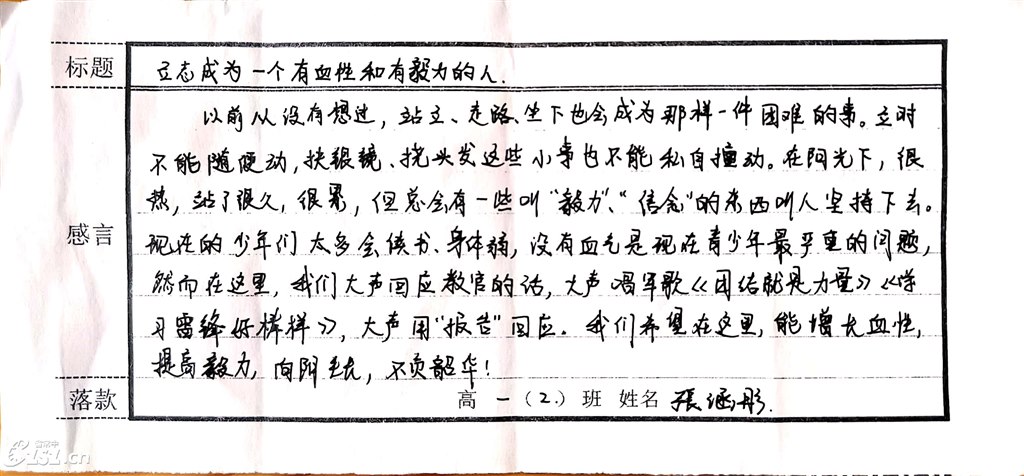 标题 立志成为一个有血性和有毅力的人.
以前从没有想过，站立、走路、坐下也会成为那样一件困难的事。立时
不能随便动，扶眼镜、挠头发这些小事也不能私自擅动。在阳光下，很
热，站了很久，很累，但总会有一些叫“毅力”、“信念”的东西叫人坚持下去。
感言 现在的少年们太多会读书、身体弱，没有血气是现在青少年最严重的问题，
然而在这里，我们大声回应教官的话，大声唱军歌《团结就是力量》《学
习雷锋好榜样》，大声用“报告”回应。我们希望在这里，能增长血性，
提高毅力，向阳生长，不负韶华！
落款 高一（2.）班 姓名 張涵彤.